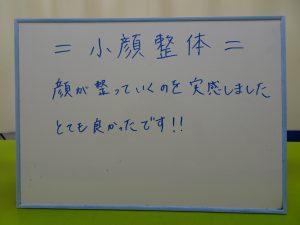 = 小顔整体 =
顔が整っていくのを実感しました
とても良かったです!!